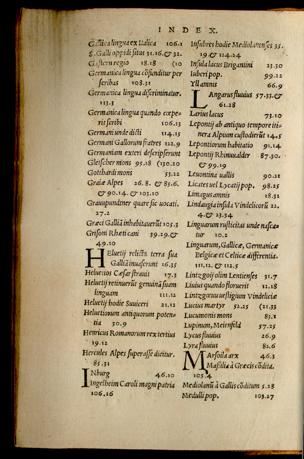 INDEX.
Gallica lingua ex Italica 106.1
S. Galli oppidi situs 31.16.& 32.
Gasteren regio 18.18
Germanica lingua cōfunditur per
scribas 108.31
Germanica lingua discriminatur.
113.3
Germanica lingua quando cœpe-
rit scribi 106.13
Germani unde dicti 114.15
Germani Gallorum fratres 122.9
Germaniam exteri descripserunt
Gletscher mons 95.18
Gotthardi mons 53.22
Graiæ Alpes 26.8. & 85.6.
& 90.14. & 103.10
Grauspundtner quare sic uocati.
27.2
Græci Galliā inhabitauerūt 105.3
Grisoni Rhetí cani 39.29.&
49.10
Heluetij relicta terra sua
Galliā inuaserunt 16.35
Heluetios Cæsar strauit 17.3
Heluetij retinuerūt genuinā suam
linguam 111.12
Heluetij hodie Suuiceri 21.12
Heluetiorum antiquorum poten-
tia 50.9
Henricus Romanorum rex tertius
19.12
Hercules Alpes superasse dicitur.
85.31
INburg 46.10
Ingelheim Caroli magni patria
106.16
Insubres hodie Mediolanenses 35.
19.& 114.24
Insula lacus Brigantini 23.30
Iuberi pop. 99.22
Yll amnis 66.9
LAngarus fluuius 57.33.&
61.28
Larius lacus 73.10
Lepontij ab antiquo tempore iti-
nera Alpium custodierūt 14.5
Lepontiorum habitatio 91.14
Lepontij Rhinuualder 87.30.
& 99.19
Leuontina uallis 90.21
Licates uel Lycatij pop. 98.25
Limagus amnis 18.31
Lindaugia insula Vindelicorū 22.
4.& 23.34
Linguarum rusticitas unde nasca-
tur 10.2
Linguarum, Gallicæ, Germanicæ
Belgicæ et Celticæ differentia.
111.12.& 112.5
Lintzgoij olim Lentienses 31.7
Liuius quando floruerit 11.18
Lintzgorum uestigium Vindeliciæ
Lucius martyr 52.25
Lucumonis mons 83.1
Lupinum, Meienfeld 57.25
Lycus fluuius 26.9
Lyra fluuius 82.6
MArsoila arx 46.3
Massilia à Græcis cōdita.
105.4
Mediolanū à Gallis cōditum 5.28
Medulli pop. 103.27